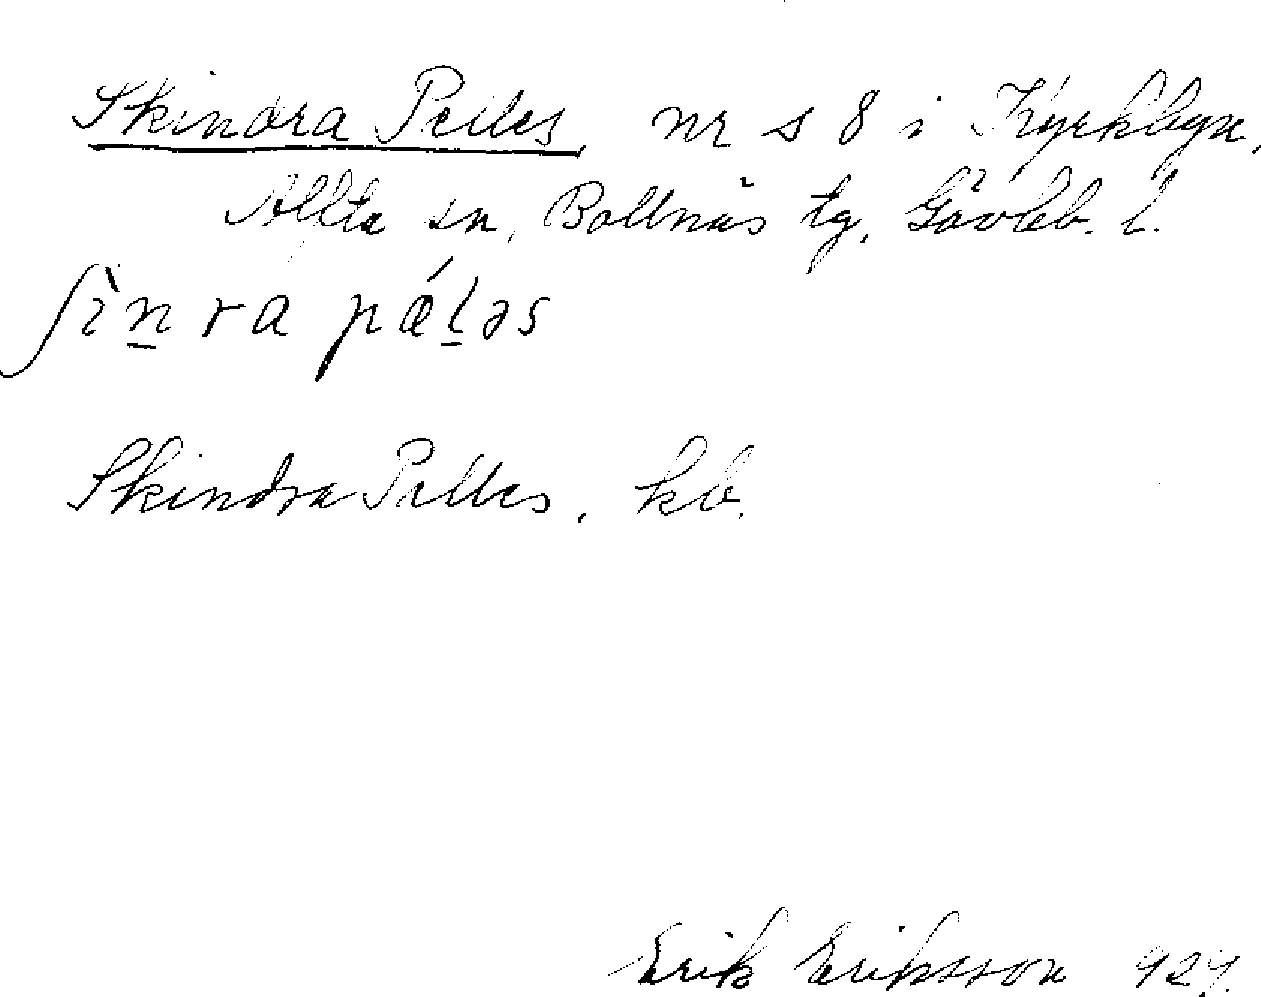 Skindra Pelles nr s 8 i Kyrkbyn,
Alfta sn, Bollnäs tg, Gävleb. l.
ʃìn̲ra pǽl̲əs
Skindra Pelles, kb.
Erik Eriksson 927.